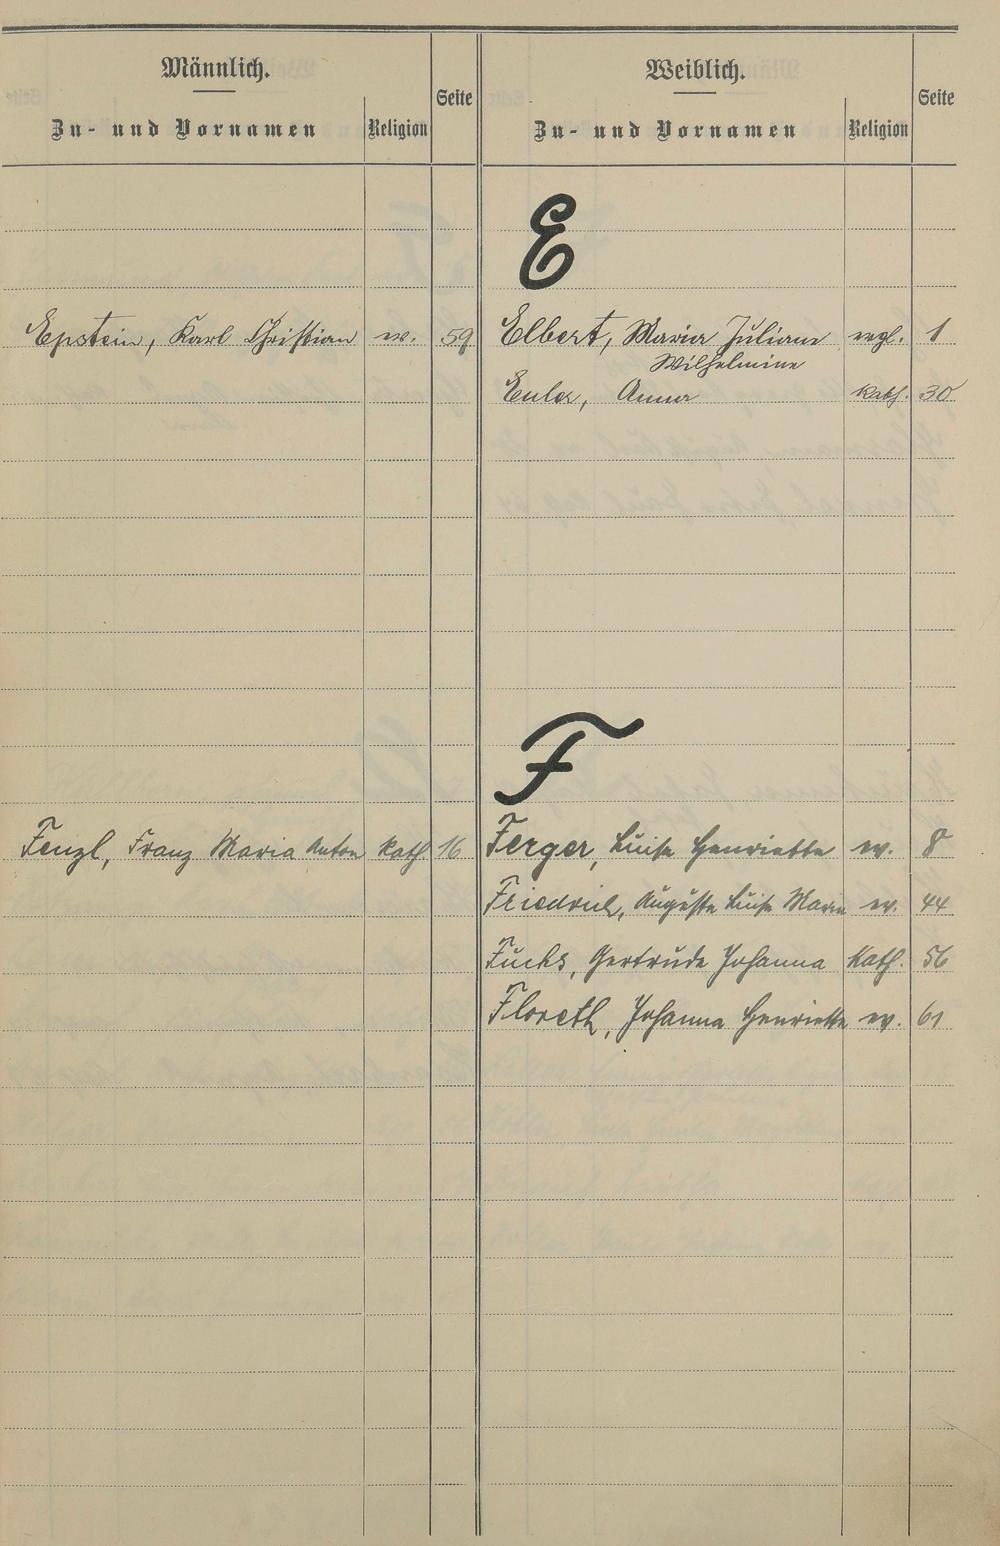 Männlich.
Zu- und Vornamen Religion Seite
Weiblich.
Zu- und Vornamen Religion Seite
E
Epstein, Karl Christian ev. 59
Elbert, Maria Juliane evgl. 1
Wilhelmine
Euler, Anna kath. 30
F
Fenzl, Franz Maria Anton kath. 16
Ferger, Luise Henriette ev. 8
Friedrich, Auguste Luise Marie ev. 44
Fuchs, Gertrude Johanna kath. 56
Floreth, Johanna Henriette ev. 61